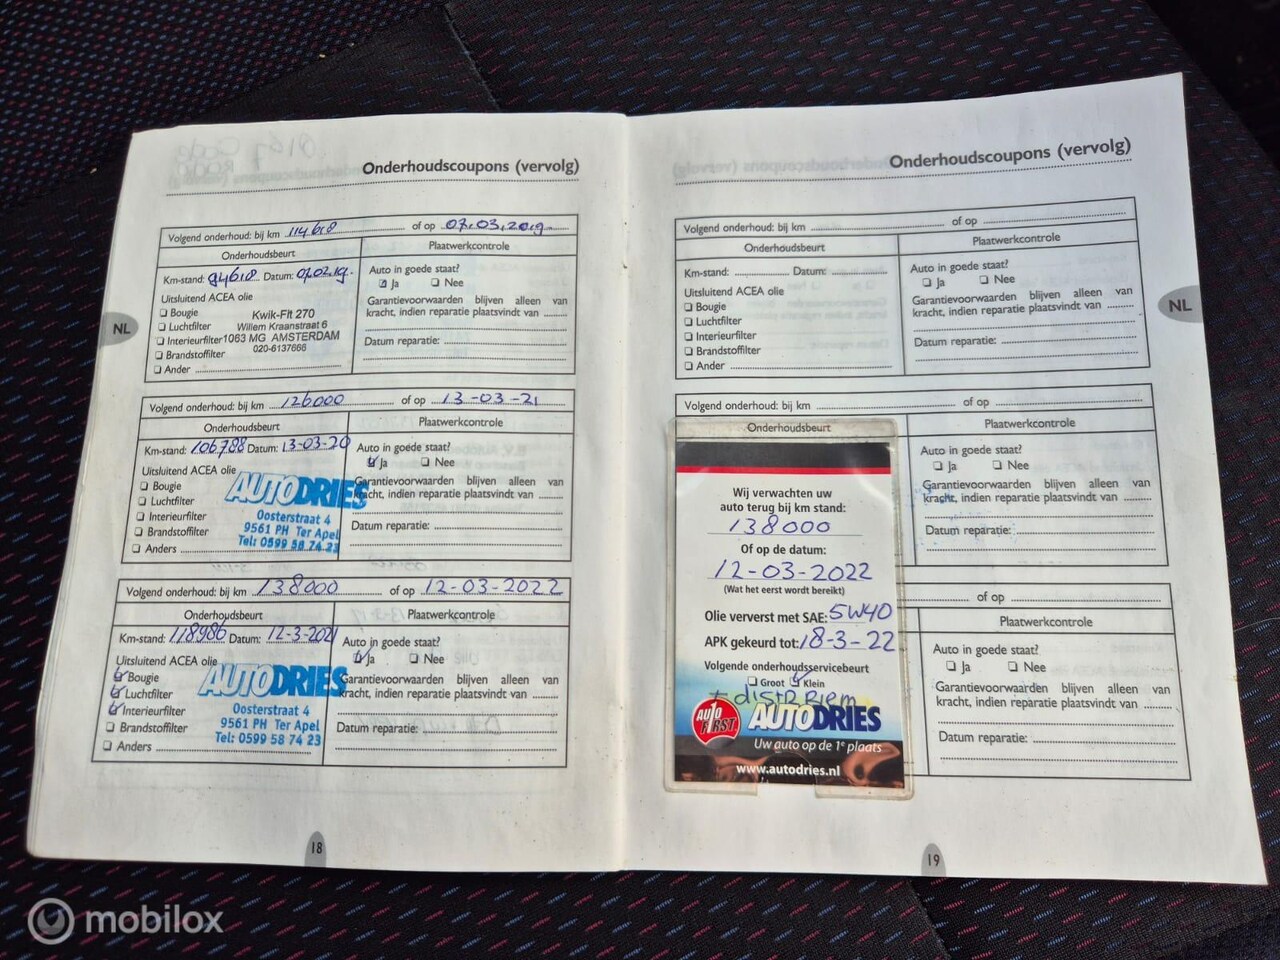 Onderhoudscoupons (vervolg)
Volgend onderhoud: bij km 114618 of op 07.03.2019
Onderhoudsbeurt
Plaatwerkcontrole
Km-stand: 94618 Datum: 07.02.19.
Auto in goede staat?
Ja Nee
Uitsluitend ACEA olie
Bougie
Luchtfilter
Interieurfilter
Brandstoffilter
Ander
Kwik-Fit 270
Willem Kraanstraat 6
1063 MG AMSTERDAM
020-6137666
Garantievoorwaarden blijven alleen van
kracht, indien reparatie plaatsvindt van
Datum reparatie:
NL
Volgend onderhoud: bij km 126000 of op 13-03-21
Onderhoudsbeurt
Plaatwerkcontrole
Km-stand: 106788 Datum: 13-03-20
Auto in goede staat?
Ja Nee
Uitsluitend ACEA olie
Bougie
Luchtfilter
Interieurfilter
Brandstoffilter
Anders
AUTODRIES
Oosterstraat 4
9561 PH Ter Apel
Tel: 0599 58 74 23
Garantievoorwaarden blijven alleen van
kracht, indien reparatie plaatsvindt van
Datum reparatie:
Volgend onderhoud: bij km 138000 of op 12-03-2022
Onderhoudsbeurt
Plaatwerkcontrole
Km-stand: 118986 Datum: 12-3-2021
Auto in goede staat?
Ja Nee
Uitsluitend ACEA olie
Bougie
Luchtfilter
Interieurfilter
Brandstoffilter
Anders
AUTODRIES
Oosterstraat 4
9561 PH Ter Apel
Tel: 0599 58 74 23
Garantievoorwaarden blijven alleen van
kracht, indien reparatie plaatsvindt van
Datum reparatie:
18
Onderhoudscoupons (vervolg)
Volgend onderhoud: bij km of op
Onderhoudsbeurt
Plaatwerkcontrole
Km-stand: Datum:
Auto in goede staat?
Ja Nee
Uitsluitend ACEA olie
Bougie
Luchtfilter
Interieurfilter
Brandstoffilter
Ander
Garantievoorwaarden blijven alleen van
kracht, indien reparatie plaatsvindt van
Datum reparatie:
NL
Volgend onderhoud: bij km of op
Onderhoudsbeurt
Plaatwerkcontrole
Auto in goede staat?
Ja Nee
Garantievoorwaarden blijven alleen van
kracht, indien reparatie plaatsvindt van
Datum reparatie:
Wij verwachten uw
auto terug bij km stand:
138000
Of op de datum:
12-03-2022
(Wat het eerst wordt bereikt)
Olie ververst met SAE: 5W40
APK gekeurd tot: 18-3-22
Volgende onderhoudsservicebeurt
Groot Klein
+ distr Riem
AUTO FIRST
AUTODRIES
Uw auto op de 1e plaats
www.autodries.nl
of op
Plaatwerkcontrole
Auto in goede staat?
Ja Nee
Garantievoorwaarden blijven alleen van
kracht, indien reparatie plaatsvindt van
Datum reparatie:
19
mobilox